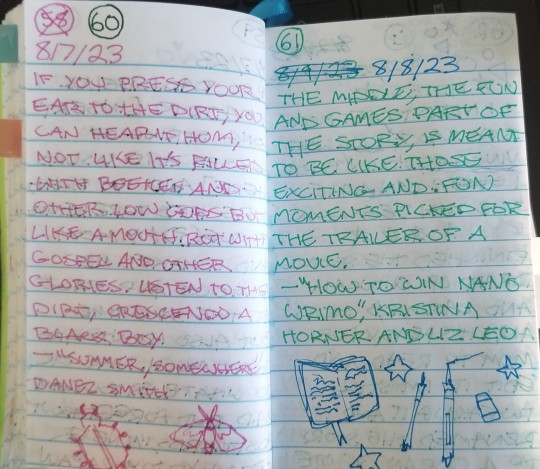 58 60
8/7/23
IF YOU PRESS YOUR
EAR TO THE DIRT, YOU
CAN HEAR IT HUM,
NOT LIKE IT'S FILLED
WITH BEETLES AND
OTHER LOW GODS BUT
LIKE A MOUTH ROT WITH
GOSPEL AND OTHER
GLORIES. LISTEN TO THE
DIRT, CRESCENDO A
BLACK BOY
—"SUMMER, SOMEWHERE"
DANEZ SMITH
61
8/8/23
THE MIDDLE, THE FUN
AND GAMES PART OF
THE STORY, IS MEANT
TO BE LIKE THOSE
EXCITING AND FUN
MOMENTS PICKED FOR
THE TRAILER OF A
MOVIE.
—"HOW TO WIN NANO
WRIMO", KRISTINA
HORNER AND LIZ LEO